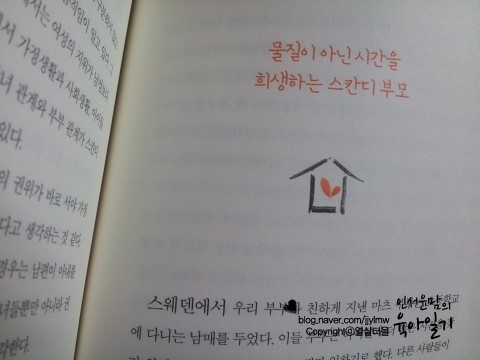 서는 여성의 지위가
서 가정생활과 사회생활
녀 관계와 부부 관계가 스칸디
있다.
의 권위가 바로 서야 가정
다고 생각하는 것 같다.
경우는 남편이 아내를
녀들뿐만 아니라 전
각한다.
물질이 아닌 시간을
희생하는 스칸디 부모
스웨덴에서 우리 부부 친하게 지낸 마츠 학교
에 다니는 남매를 두었다. 이들 부부
하기로 했다. 다른 사람들이
민선윤맘의
육아일기
blog.naver.com/jjylmw
Copyright@열살터울